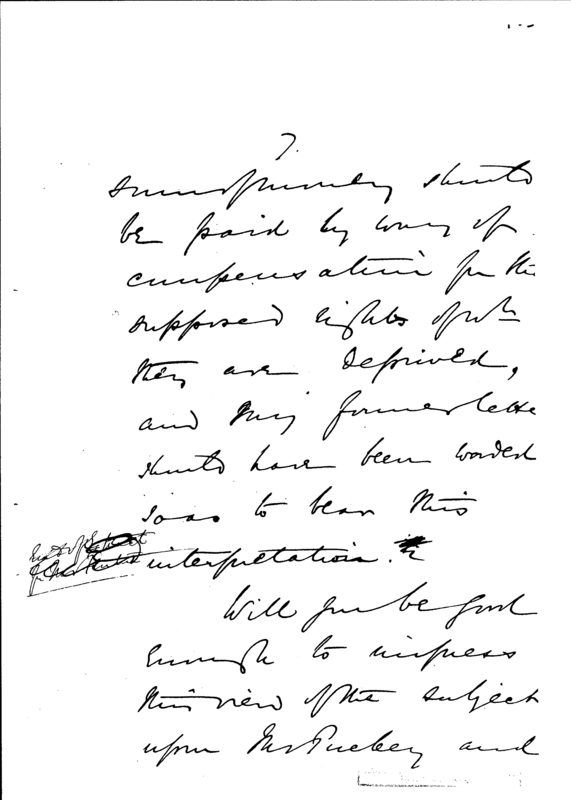 7.
sum of money should
be paid by way of
compensation for the
supposed rights of wh
they are deprived,
and my former letter
should have been worded
so as to bear this
interpretation.
Will you be good
enough to impress
this view of the subject
upon Mr and